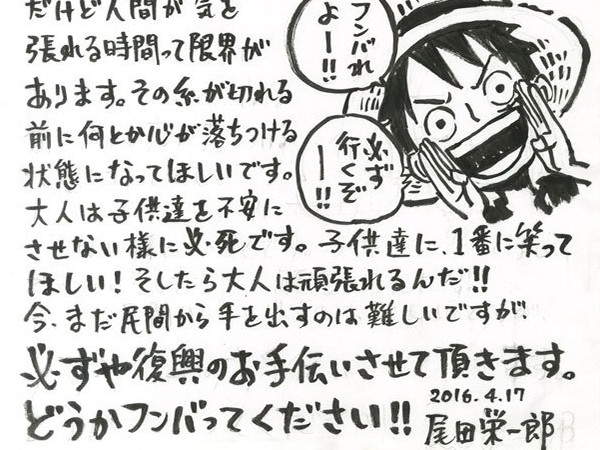 だけど人間が気を
張れる時間って限界が
あります。その糸が切れる
前に何とか心が落ちつける
状態になってほしいです。
大人は子供達を不安に
させない様に必死です。子供達に、1番に笑って
ほしい!そしたら大人は頑張れるんだ!!
今、まだ民間から手を出すのは難しいですが、
必ずや復興のお手伝いさせて頂きます。
どうかフンバってください!!
2016.4.17
尾田栄一郎
フンバれ
よー!!
必ず
行くぞ
ー!!